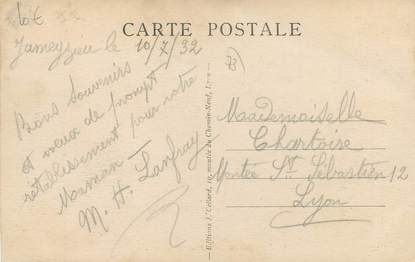 lot
CARTE POSTALE
Jameyzieu le 10/7/32
73
Bons souvenirs
et vœux de prompt
rétablissement pour votre
Maman
M. H. Lanfray
Mademoiselle
Chartoire
Montée St. Sébastien 12
Lyon
Editions J. Cellard, montée du Chemin-Neuf, Lyon